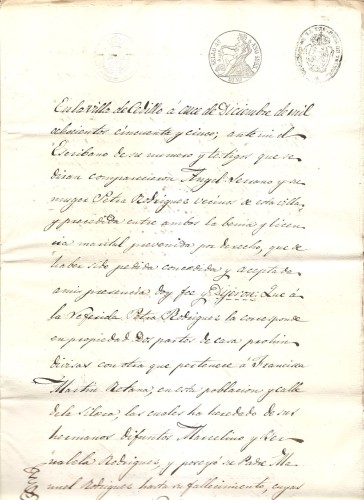 En la villa de Cedillo á once de Diciembre de mil
ochocientos cincuenta y cinco; ante mi el
Escribano de su numero y testigos que se
dirán comparecieron Angel Serrano y su
muger Petra Rodriguez vecinos de esta villa,
y precedida entre ambos la venia y licen
cia marital prevenida por derecho, que de
haber sido pedida concedida y aceptada
a mi presencia doy fee y Dijeron: Que á
la referida Petra Rodriguez la corresponde
en propiedad dos partes de casa proin
divisas con otra que pertenece á Francisca
Martin Retana, en esta poblacion y calle
de la las cuales ha heredado de sus
hermanos difuntos Marcelino y
Rodriguez, y poseyó su Padre Ma
nuel Rodriguez hasta su fallecimiento, cuyas